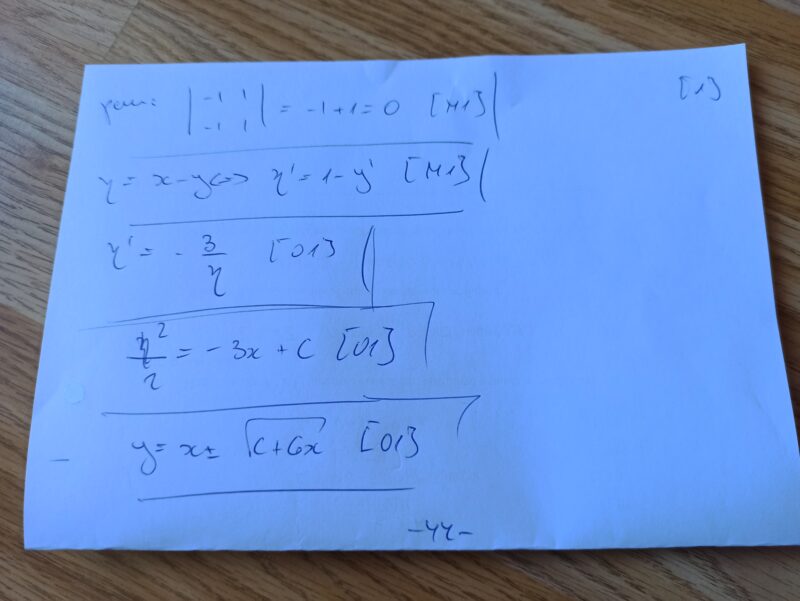 | -1 1 | = -1+1=0 [M1] [1]
| -1 1 |
η = x-y <=> η' = 1-y' [M1]
η' = - 3/η [O1]
η²/2 = -3x + C [O1]
y = x ± √(C+6x) [O1]
-44-